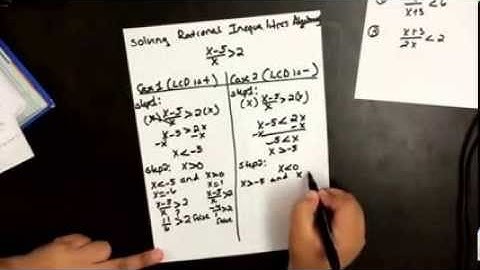 Solving Rational Inequalities Algebraically
x-5/x > 2
Case 1 (LCD is +)
Step1:
(x) x-5/x > 2(x)
x-5 > 2x
-x -x
x < -5
Step2: x > 0
x < -5 and x > 0
x = -6 x = 1
x-5/x > 2 x-5/x > 2
11/6 > 2 False -5 > 2 False
Case 2 (LCD is -)
Step1:
(x) x-5/x > 2(x)
x-5 < 2x
-x -x
-5 < x
x > -5
Step2: x < 0
x > -5 and x
x+3 < 6
② x+3/2x < 2